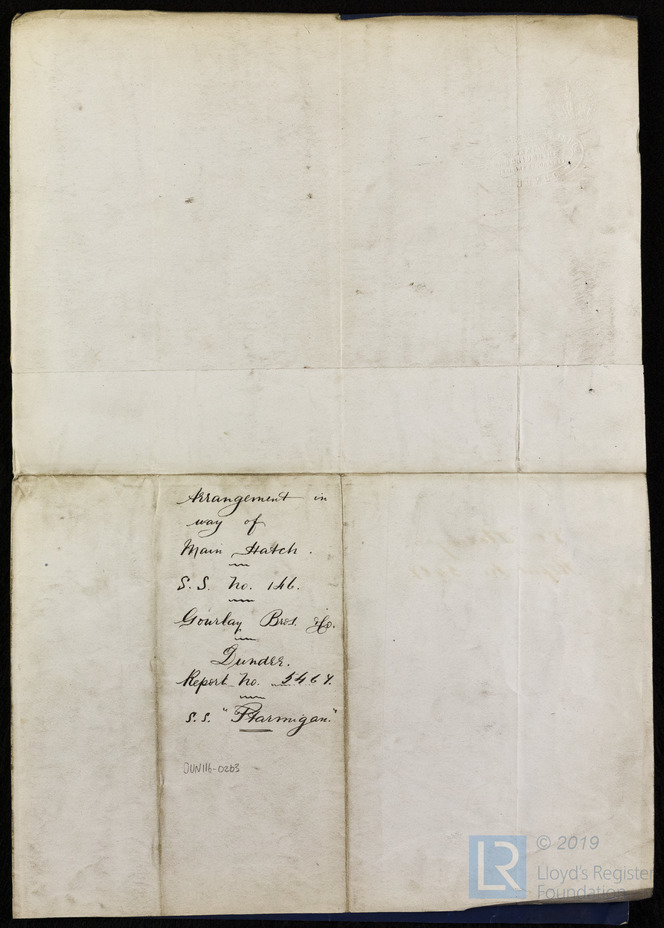 Arrangement in
way of
Main Hatch.
S.S. No. 146.
Gourlay Bros. & Co.
Dundee.
Report No. 5464.
S.S. "Ptarmigan."
DUN116-0263
LR
© 2019
Lloyd's Register
Foundation